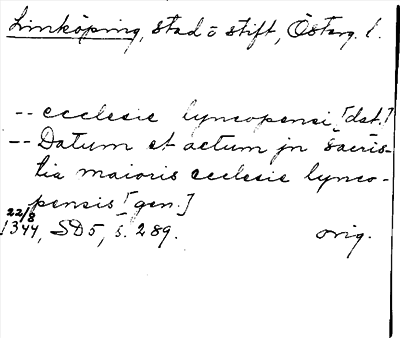 Linköping, stad o stift, Österg. l.
-- ecclesie lyncopensi [dat.]
-- Datum et actum jn sacris-
tia maioris ecclesie lynco-
pensis [gen.]
22/8
1344, SD5, s. 289. orig.